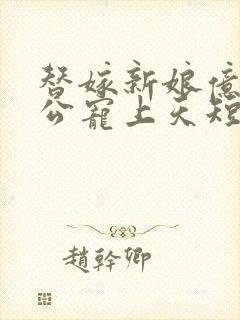 替嫁新娘億
公寵上天短
趙幹卿